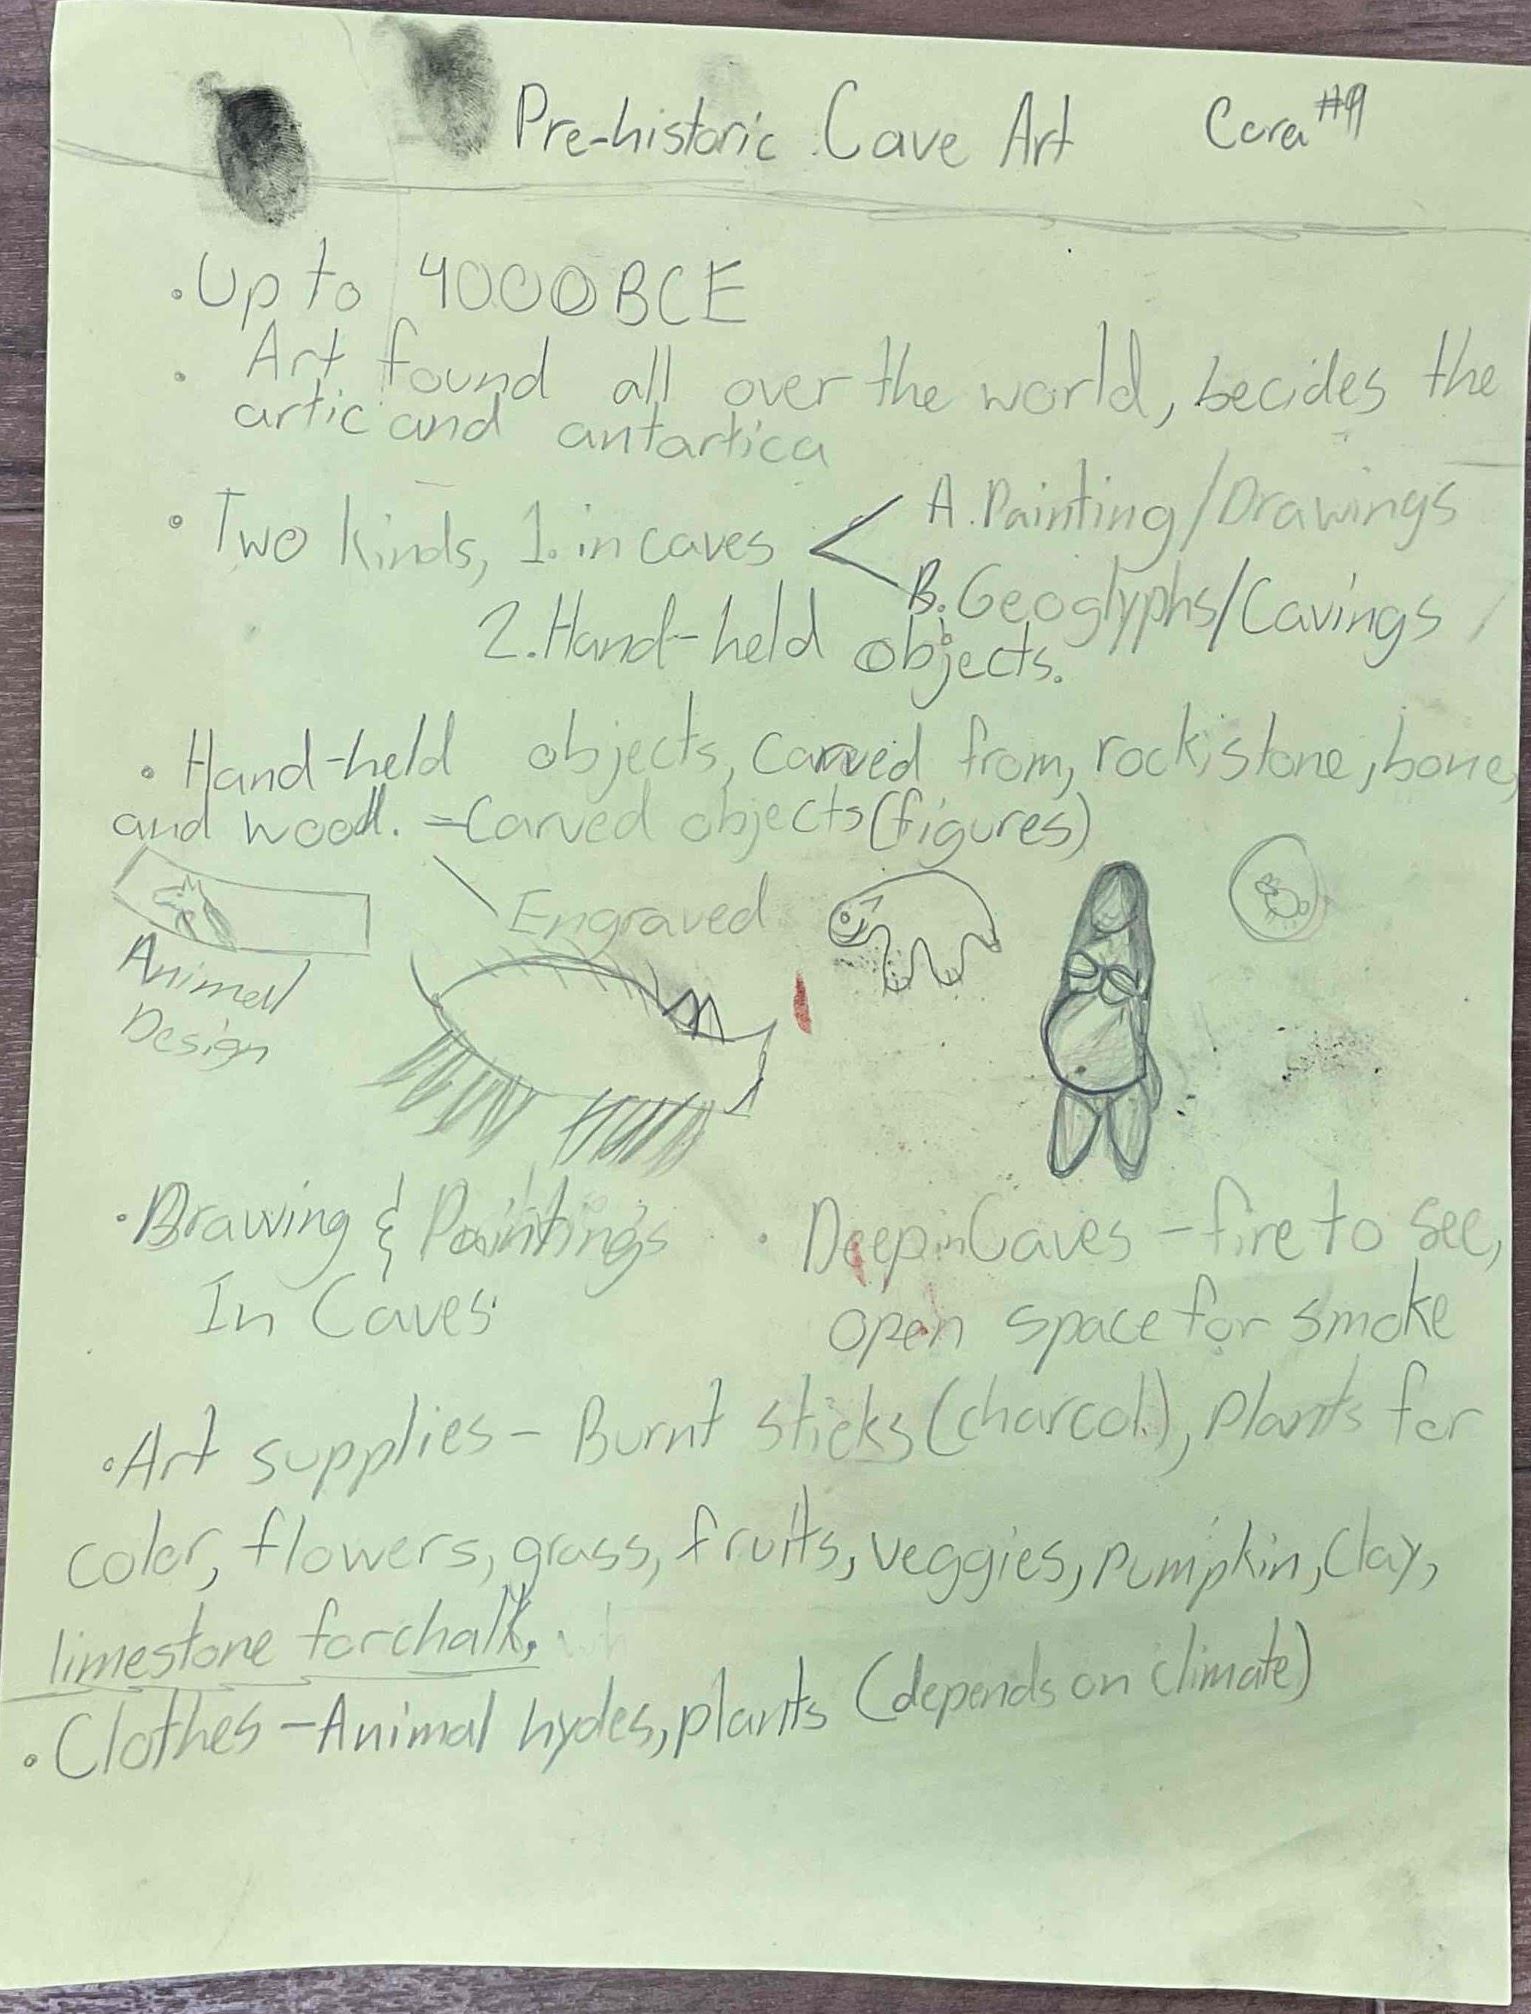 Pre-historic Cave Art Cora #9
• Up to 4000 BCE
• Art found all over the world, becides the
artic and antartica
• Two kinds, 1. in caves < A. Painting/Drawings
B. Geoglyphs/Cavings
2. Hand-held objects.
• Hand-held objects, carved from, rock, stone, bone,
and wood. - Carved objects (figures)
Engraved
Animal
Design
• Drawing & Paintings
In Caves
• Deep in Caves - fire to see,
open space for smoke
• Art supplies - Burnt sticks (charcol), plants for
color, flowers, grass, fruits, veggies, pumpkin, clay,
limestone for chalk.
• Clothes - Animal hydes, plants (depends on climate)